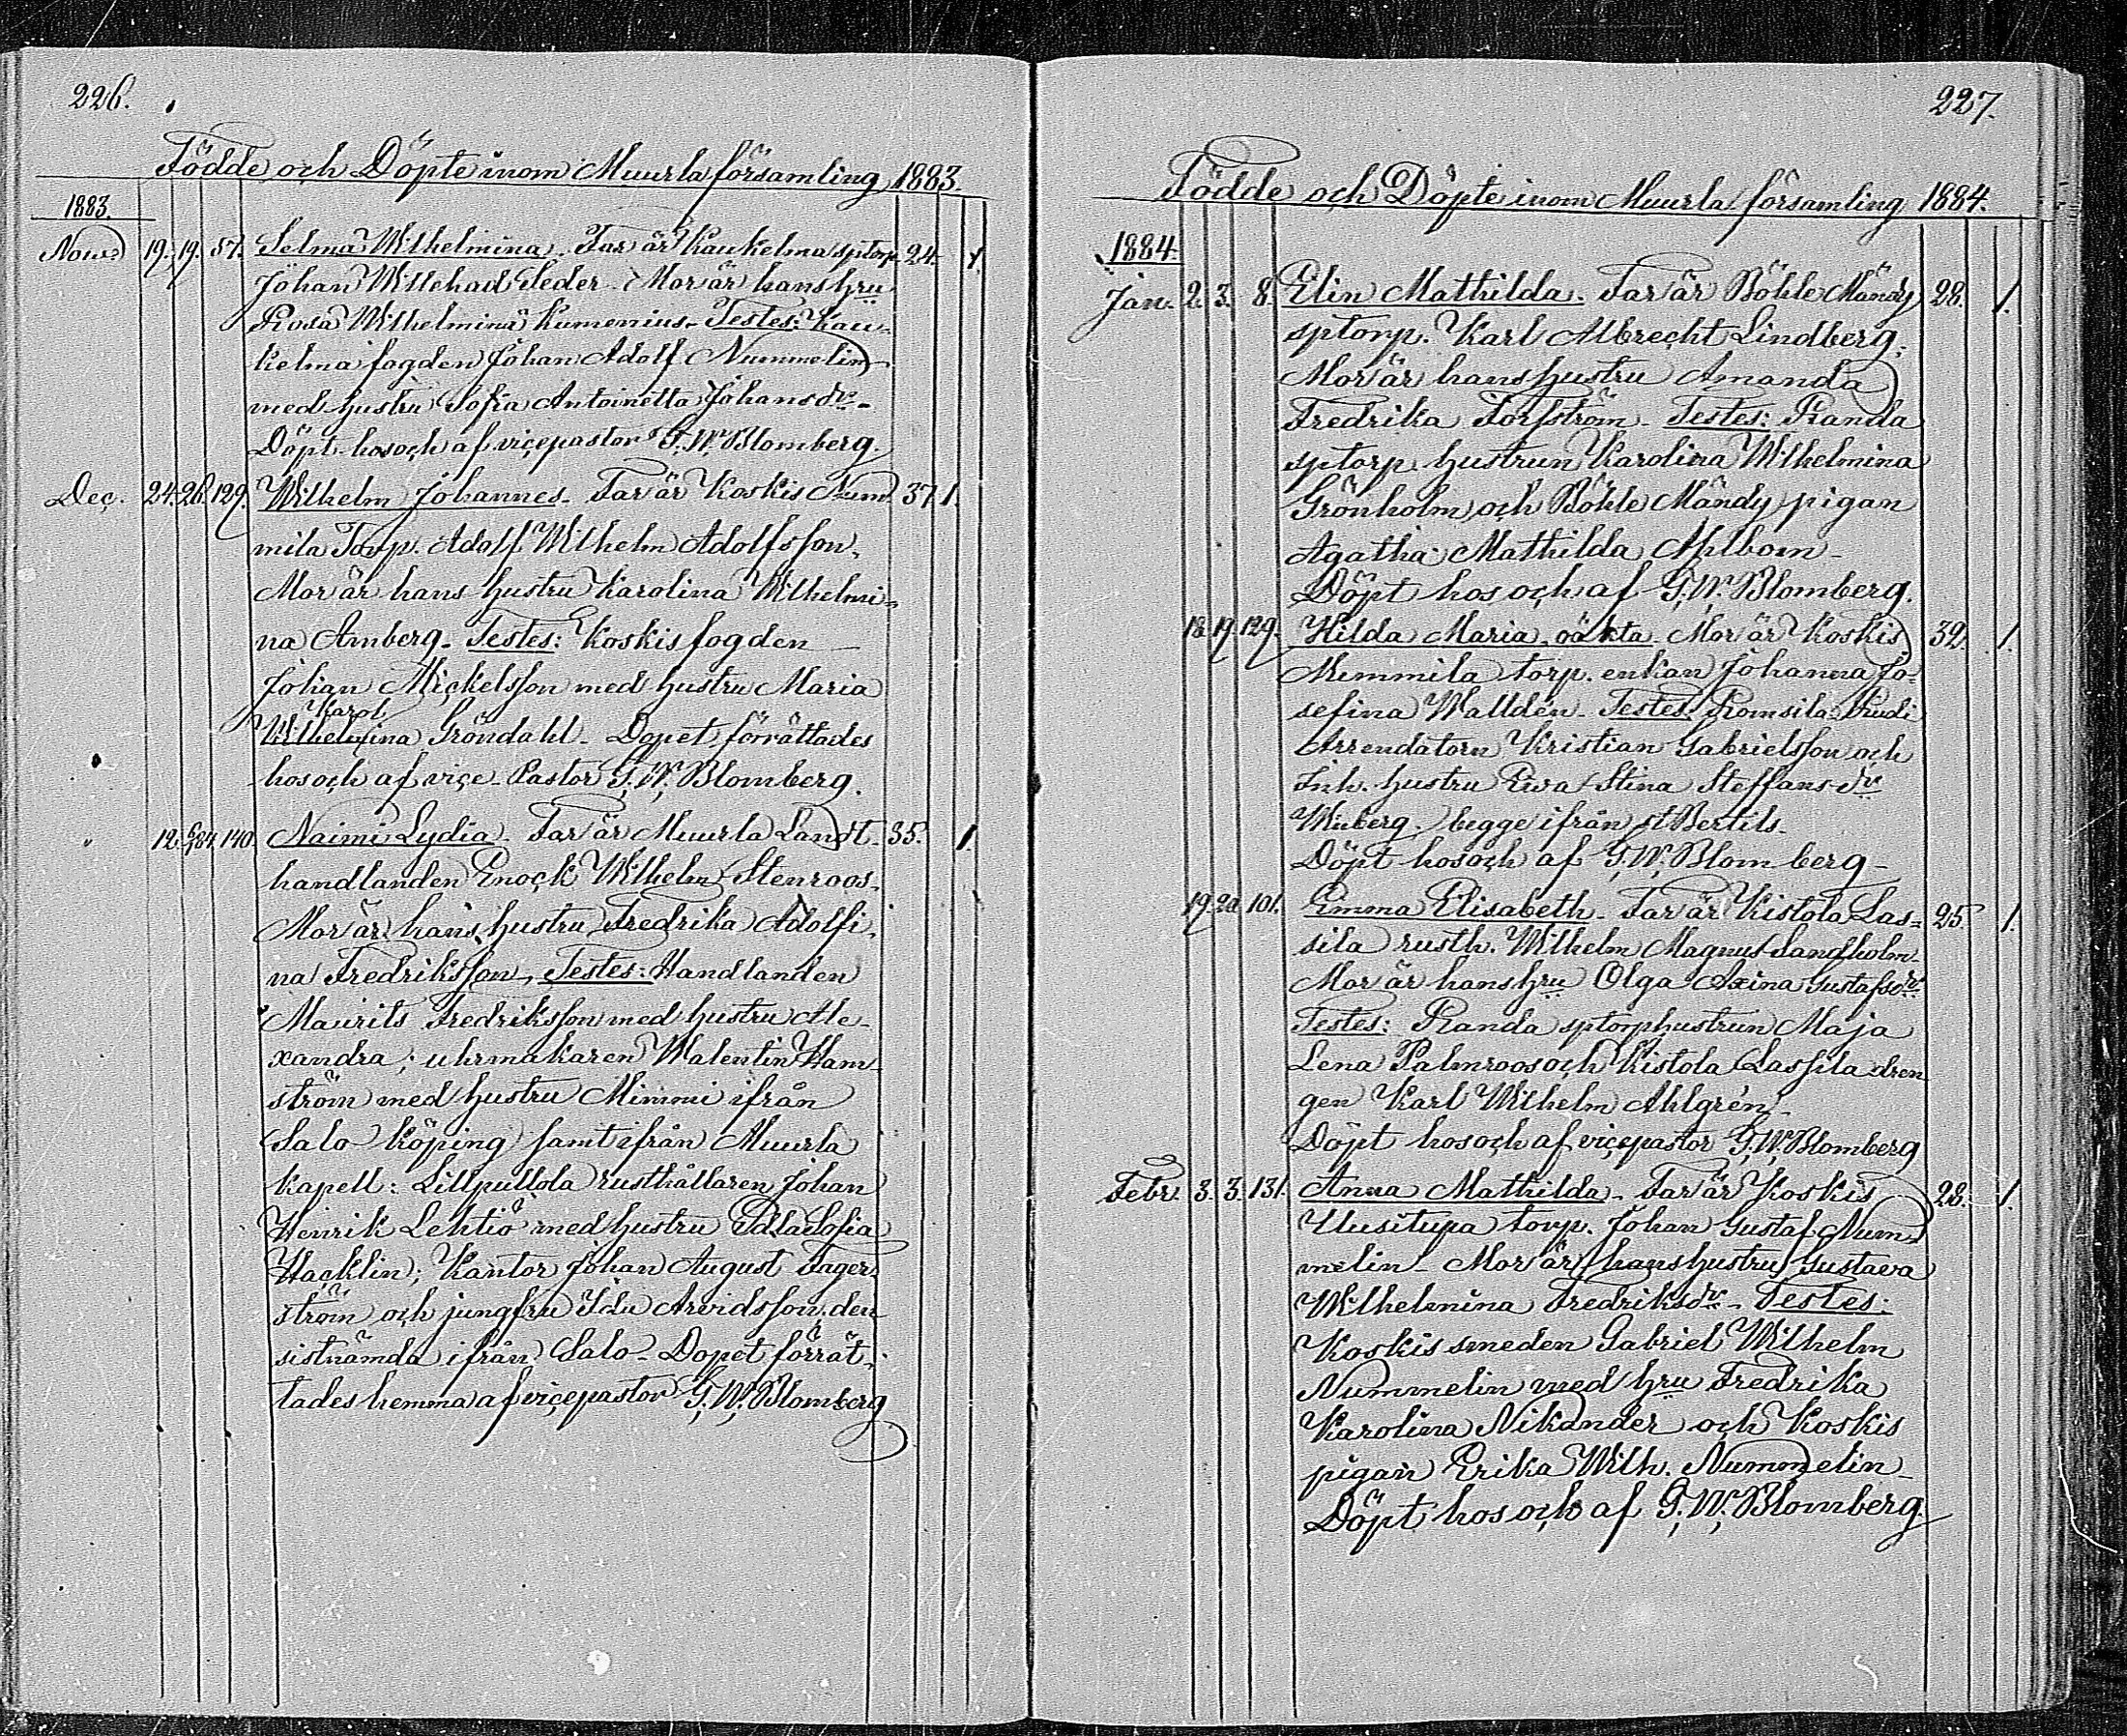 226.
Födde och Döpte inom Muurla församling 1883.
1883.
Nov. 19. 19. 87. Selma Wilhelmina. Far är Kaukelma sptorp. 24. 1.
Johan Willehad Seder. Mor är hans hru
Rosa Wilhelmina Kumenius. Testes: Kau-
kelma fogden Johan Adolf Nummelin
med hustru Sofia Antoinetta Johansdr.
Döpt hos och af vicepastor G. W. Blomberg.
Dec. 24. 26. 129. Wilhelm Johannes. Far är Koskis Num- 37. 1.
mila Torp. Adolf Wilhelm Adolfsson.
Mor är hans hustru Karolina Wilhelmi-
na Amberg. Testes: Koskis fogden
Johan Mickelsson med hustru Maria
Karol.
Wilhelmina Gröndahl. Dopet förrättades
hos och af vice Pastor G. W. Blomberg.
" 12. 6/1 84. 140. Naimi Lydia. Far är Muurla Landt- 35. 1.
handlanden Enock Wilhelm Stenroos.
Mor är hans hustru Fredrika Adolfi-
na Fredriksson. Testes: Handlanden
Maurits Fredriksson med hustru Ale-
xandra; uhrmakaren Walentin Ham-
ström med hustru Mimmi ifrån
Salo köping samt ifrån Muurla
kapell: Lillpullola rusthållaren Johan
Henrik Lehtiö med hustru Edla Sofia
Hacklin; Kantor Johan August Fager-
ström och jungfru Ida Arvidsson, den
sistnämda ifrån Salo. Dopet förrät-
tades hemma af vicepastor G. W. Blomberg
227.
Födde och Döpte inom Muurla församling 1884.
1884.
Jan. 2. 3. 8. Elin Mathilda. Far är Böhle Mändy 28. 1.
sptorp. Karl Albrecht Lindberg;
Mor är hans hustru Amanda
Fredrika Torfström. Testes: Randa
sptorp hustrun Karolina Wilhelmina
Grönholm och Böhle Mändy pigan
Agatha Mathilda Ahlbom.
Döpt hos och af G. W. Blomberg.
18. 19. 129. Hilda Maria, oäkta. Mor är Koskis 32. 1.
Memmila torp. enkan Johanna Jo-
sefina Walldén. Testes: Romsila Rudi
Arrendatorn Kristian Gabrielsson och
Inh. hustru Ewa Stina Steffansdr
Wiberg. begge ifrån St Bertils.
Döpt hos och af G. W. Blomberg.
19. 20. 101. Emma Elisabeth. Far är Kistola Las- 25. 1.
sila rusth. Wilhelm Magnus Sandholm.
Mor är hans hru Olga Axina Gustafsdr.
Testes: Randa sptorphustrun Maja
Lena Palmroos och Kistola Lassila dren
gen Karl Wilhelm Ahlgrén.
Döpt hos och af vicepastor G. W. Blomberg
Febr. 3. 3. 131. Anna Mathilda. Far är Koskis 28. 1.
Uusitupa torp. Johan Gustaf Num-
melin. Mor är hans hustru Gustava
Wilhelmina Fredriksdr. Testes:
Koskis smeden Gabriel Wilhelm
Nummelin med hru Fredrika
Karolina Nikander och Koskis
pigan Erika Wilh. Nummelin.
Döpt hos och af G. W. Blomberg.